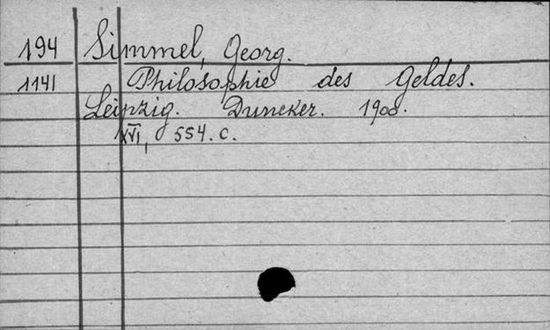 194 Simmel, Georg.
1141 Philosophie des Geldes.
Leipzig. Duncker. 1900.
XVI, 554. c.